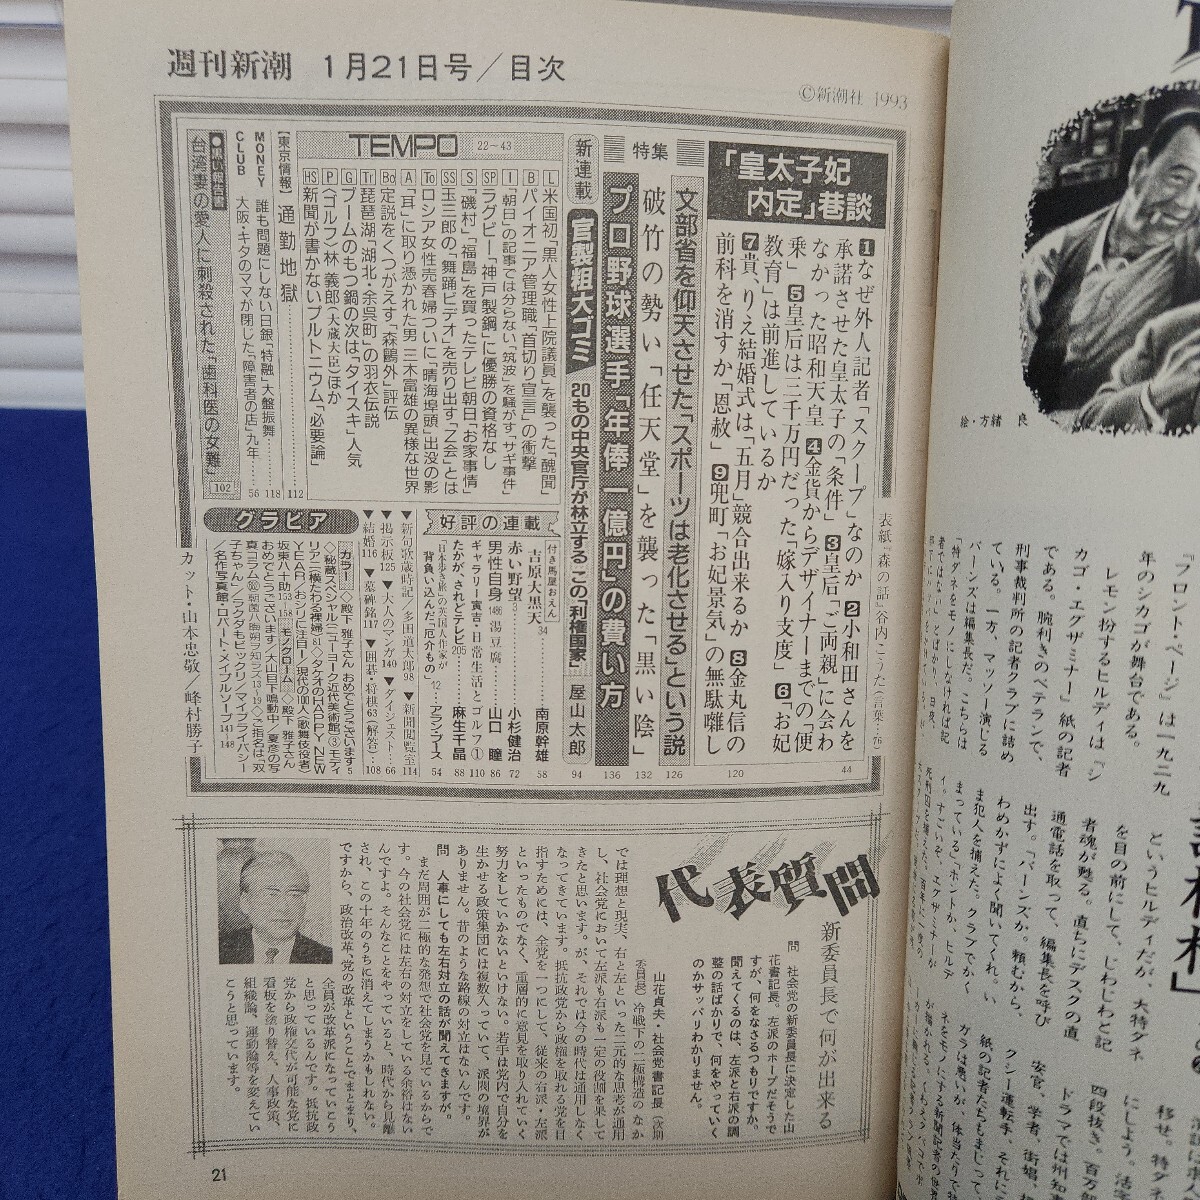 週刊新潮 1月21日号/目次
©新潮社 1993
「皇太子妃内定」巷談
1なぜ外人記者「スクープ」なのか 2小和田さんを
承諾させた皇太子の「条件」 3皇后「ご両親」に会わ
なかった昭和天皇 4金貨からデザイナーまでの「便
乗」 5皇后は三千万円だった「嫁入り支度」 6「お妃
教育」は前進しているか
7貴、りえ結婚式は「五月」競合出来るか 8金丸信の
前科を消すか「恩赦」 9兜町「お妃景気」の無駄囃し
44
120
表紙「森の話」谷内こうた(言葉…76)
特集
文部省を仰天させた「スポーツは老化させる」という説 126
破竹の勢い「任天堂」を襲った「黒い陰」 132
プロ野球選手「年俸一億円」の費い方 136
新連載
官製粗大ゴミ 20もの中央官庁が林立するこの「利権国家」 屋山太郎 94
TEMPO 22~43
L 米国初「黒人女性上院議員」を襲った「醜聞」
B パイオニア管理職「首切り宣言」の衝撃
I 「朝日」の記事では分らない「筑波」を騒がす「サギ事件」
SP ラグビー「神戸製鋼」に優勝の資格なし
S 「磯村」「福島」を買ったテレビ朝日「お家事情」
SS 玉三郎の「舞踊ビデオ」を売り出す「Z会」とは
To ロシア女性売春婦ついに「晴海埠頭」出没の影
A 「耳」に取り憑かれた男 三木富雄の異様な世界
Bo 定説をくつがえす「森鷗外」評伝
Tr 琵琶湖「湖北・余呉町」の羽衣伝説
G ブームのもつ鍋の次は「タイスキ」人気
P 〈ゴルフ〉林 義郎(大蔵大臣)ほか
HS 新聞が書かないプルトニウム「必要論」
【東京情報】通勤地獄 112
MONEY 誰も問題にしない日銀「特融」大盤振舞 118
CLUB 大阪・キタのママが閉じた「障害者の店」九年 56
台湾妻の愛人に刺殺された「歯科医の女難」 102
好評の連載
付き馬屋おえん 吉原大黒天 34 南原幹雄 58
赤い野望 3 小杉健治 72
男性自身 湯豆腐 山口 瞳 86
ギャラリー寅吉・日常生活とゴルフ① 110
たかが、されどテレビ 205 麻生千晶 88
「日本歩き旅」の英国人作家が背負い込んだ「厄介もの」 12 アラン・ブース 54
▼新句歌歳時記/多田道太郎 98 ▼新聞閲覧室 114
▼掲示板 125 ▼大人のマンガ 140 ▼ダイジェスト 66
▼結婚 116 ▼墓碑銘 117 ▼囲碁・将棋 63(解答) 108
グラビア
カラー ◇殿下 雅子さん おめでとうございます 5
◇秘蔵スペシャル(ニューヨーク近代美術館)③モディ
リアニ「横たわる裸婦」81 ◇タケオのHAPPY NEW
YEAR/おシリに注目!/現代の加人(歌舞伎役者)
坂東八十助 153~158 モノクローム ◇殿下 雅子さん
おめでとうございます/大山目下鳴動中/夏彦の写
真コラム 13~19 ◇ご指名は「双
子ちゃん」/ラクダもビックリ/マイプライバシー
/名作写真館・ロバート・メイプルソープ 141~148
カット・山本忠敬/峰村勝子
代表質問
新委員長で何が出来る
問 社会党の新委員長に決定した山
花書記長。左派のホープだそうで
すが、何をなさるつもりですか。
聞えてくるのは、左派と右派の調
整の話ばかりで、何をやっていく
のかサッパリわかりません。
山花貞夫・社会党書記長(次期
委員長) 冷戦下の二極構造のなか
では理想と現実、右と左といった二元的な思考が通用
し、社会党において左派も右派も一定の役割を果して
きたと思います。が、それでは今の時代は通用しなく
なってきています。抵抗政党から政権を取れる党を目
指すためには、全党を一つにして、従来の右派・左派
といったものでなく、重層的に意見を取り入れていく
努力をしていかないといけない。若手は党内で自分を
生かせる政策集団には複数入っていて、派閥の境界が
ありません。昔のような路線の対立はないんです。
問 人事にしても左右対立の話が聞えてきますが。
まだ周囲が二極的な発想で社会党を見ているからで
す。今の社会党には左右の対立をしている余裕はない
んですよ。そんなことをやっていると、時代から見離
され、この十年のうちに消えてしまうかもしれない。
ですから、政治改革、党の改革ということでまとまり、
全員が改革派になっていこう
と思っているんです。抵抗政
党から政権交代が可能な党に
看板を塗り替え、人事政策、
組織論、運動論等を変えてい
こうと思っています。
21
絵・方緒 良
『フロント・ページ』は一九二九
年のシカゴが舞台である。
レモン扮するヒルディは『シ
カゴ・エグザミナー』紙の記者
である。腕利きのベテランで、
刑事裁判所の記者クラブに詰め
ている。一方、マッソー演じる
バーンズは編集長だ。こちらは
というヒルディだが、大特ダネ
を目の前にして、じわじわと記
者魂が甦る。直ちにデスクの直
通電話を取って、編集長を呼び
出す。「バーンズか。頼むから、
わめかずによく聞いてくれ。い
ま犯人を捕えた。クラブでかく
まっている」「ホントか、ヒルデ
ィ。すごいぞ、エグザミナーが